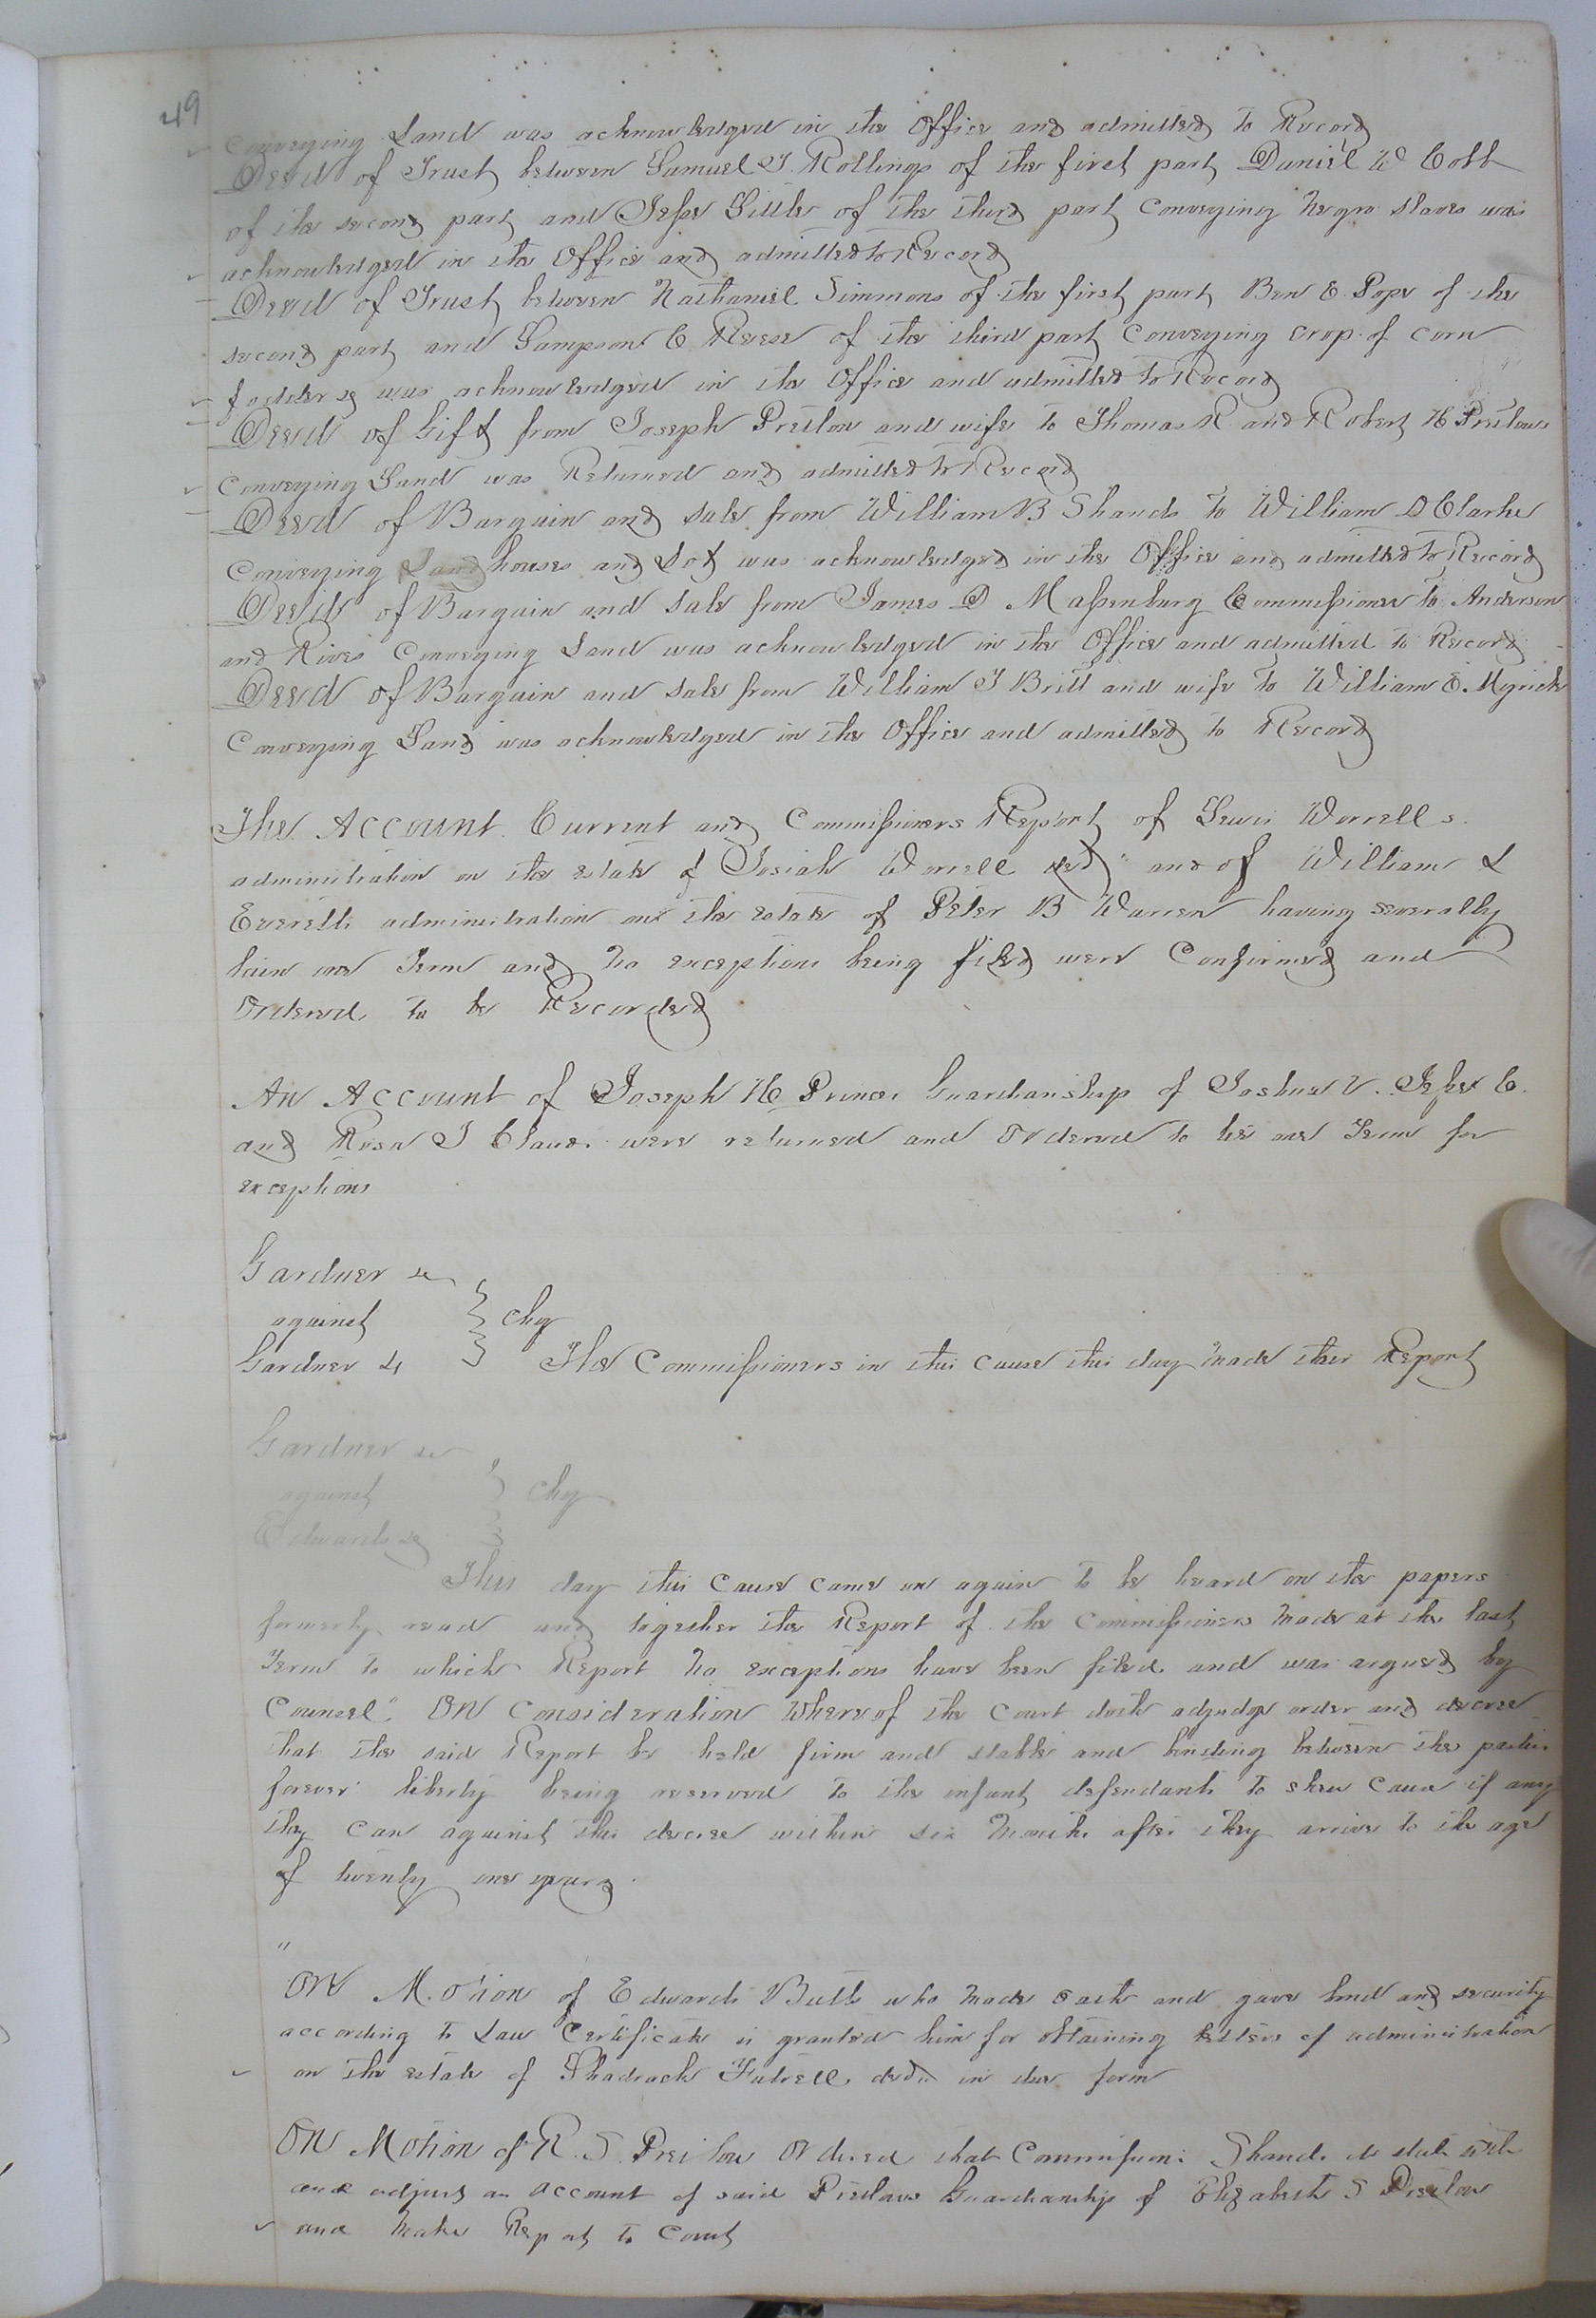 49
conveying Land was acknowledged in the Office and admitted to Record
Deed of Trust between Samuel J. Rollings of the first part Daniel W Cobb
of the second part and Jesse Little of the third part Conveying Negro Slaves was
acknowledged in the Office and admitted to Record
Deed of Trust between Nathaniel Simmons of the first part Ben E. Pope of the
second part and Sampson C Reese of the third part Conveying crop of corn
fodder &c was acknowledged in the Office and admitted to Record
Deed of Gift from Joseph Pretlow and wife to Thomas R and Robert H Pretlow
Conveying Land was Returned and admitted to Record
Deed of Bargain and sale from William B Shands to William D Clarke
Conveying Land houses and Lot was acknowledged in the Office and admitted to Record
Deed of Bargain and sale from James D Massenburg Commissioner to Anderson
and Rives Conveying Land was acknowledged in the Office and admitted to Record
Deed of Bargain and sale from William J Britt and wife to William E. Myrick
Conveying Land was acknowledged in the Office and admitted to Record
The Account Current and Commissioners Report of Lewis Worrells
administration on the estate of Josiah Worrell decd and of William L
Everetts administration on the estate of Peter B Warren having severally
lain one Term and no exceptions being filed were Confirmed and
Ordered to be Recorded
An Account of Joseph H Princes Guardianship of Joshua V. Jesse C.
and Rosa J Claud were returned and Ordered to lie one Term for
exceptions
Gardner &c
against } chy
Gardner &c The Commissioners in this cause this day made their Report
Gardner &c
against } chy
Edwards &c
This day this Cause came on again to be heard on the papers
formerly read and together the Report of the Commissioners made at the last
Term to which Report no exceptions have been filed and was argued by
Counsel" On Consideration Whereof the Court doth adjudge order and decree
that the said Report be held firm and stable and binding between the parties
forever liberty being reserved to the infant defendants to shew cause if any
they can against this decree within six months after they arrive to the age
of twenty one years
"
On Motion of Edwards Butts who made oath and gave bond and security
according to Law Certificate is granted him for obtaining letters of administration
on the estate of Shadrack Futrell decd in due form
On Motion of R. S. Pretlow Ordered that Commissioner Shands do state settle
and adjust an account of said Pretlows Guardianship of Elizabeth S Pretlow
and make Report to Court